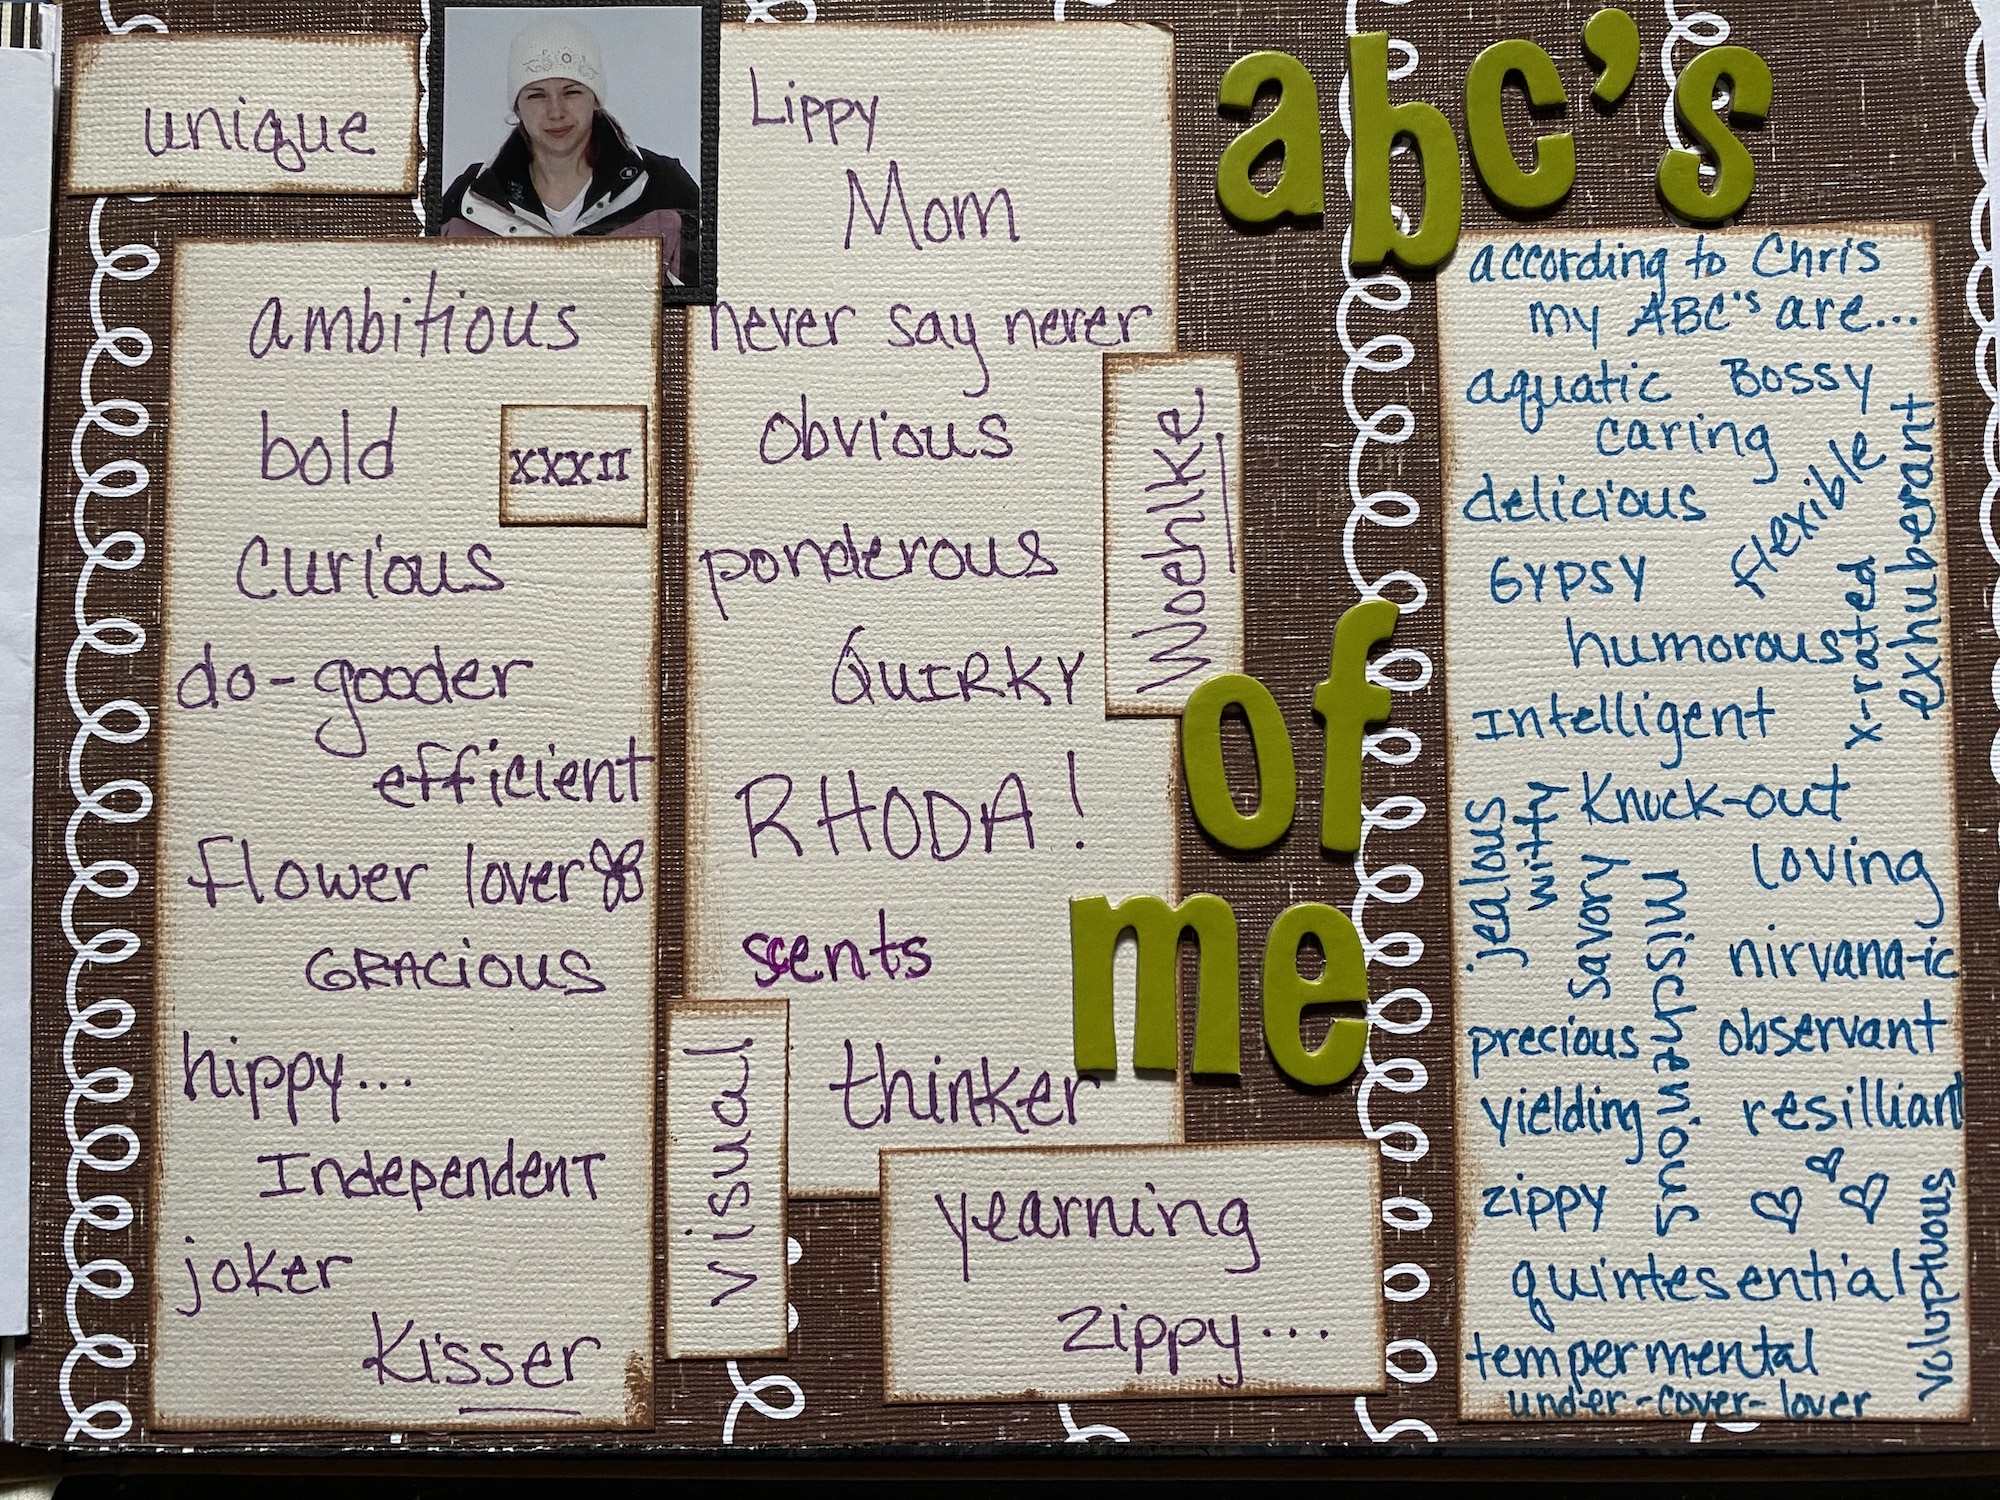 abc's
of
me
unique
ambitious
bold
XXXII
curious
do-gooder
efficient
flower lover
GRACIOUS
hippy...
Independent
joker
Kisser
Lippy
Mom
never say never
obvious
ponderous
QUIRKY
RHODA!
scents
thinker
visual
Woehlke
yearning
zippy...
according to Chris
my ABC's are...
aquatic Bossy
caring
delicious
flexible
exhuberant
GYPSY
x-rated
humorous
Intelligent
Knock-out
jealous
witty
loving
savory
Mischewious
nirvana-ic
precious
observant
yielding
resilliant
zippy
voluptuous
quintesential
tempermental
under-cover-lover